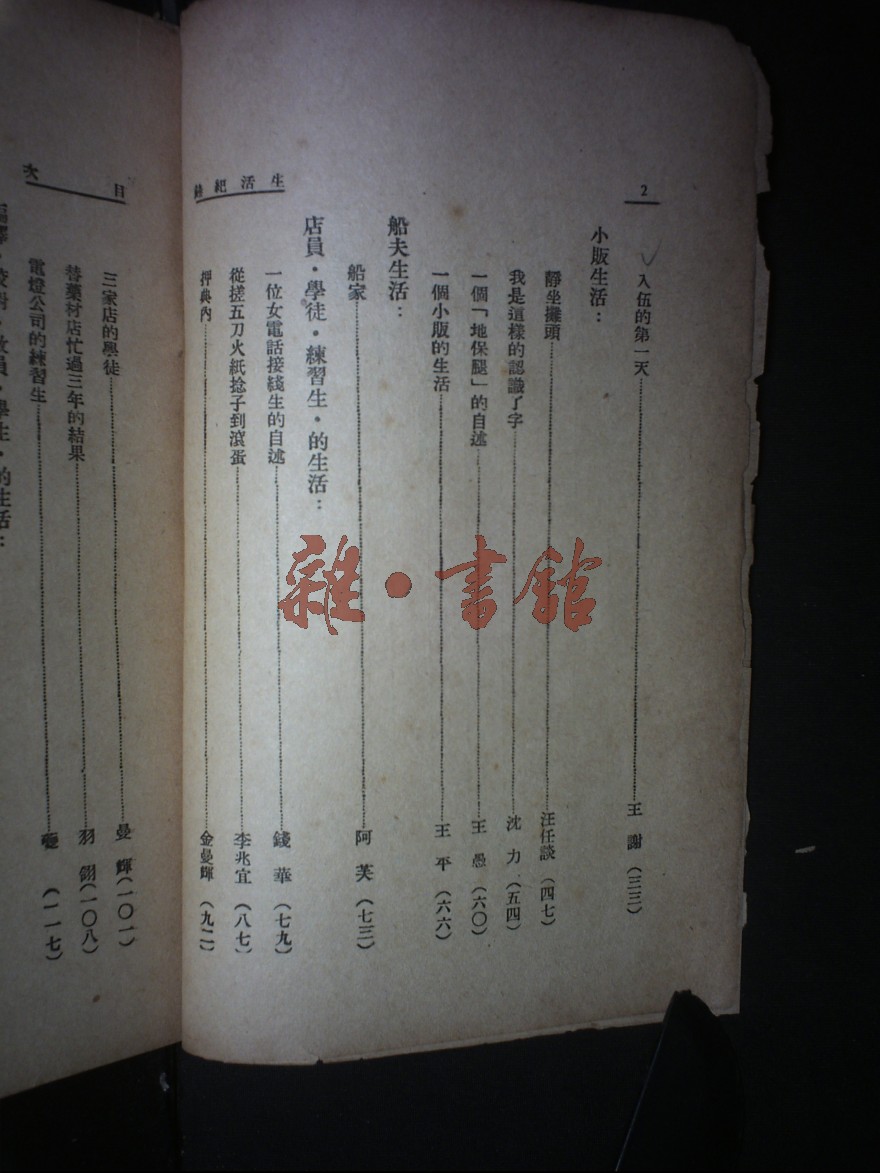 2
生活紀錄
入伍的第一天……王 謝(三三)
小販生活：
靜坐攤頭……汪任談(四七)
我是這樣的認識了字……沈 力(五四)
一個「地保腿」的自述……王 愚(六〇)
一個小販的生活……王 平(六六)
船夫生活：
船家……阿 芙(七三)
店員・學徒・練習生・的生活：
一位女電話接綫生的自述……錢 華(七九)
從搓五刀火紙捻子到滾蛋……李兆宜(八七)
押典內……金曼輝(九二)
目次
三家店的學徒……曼 輝(一〇一)
替藥材店忙過三年的結果……羽 翎(一〇八)
電燈公司的練習生……(一一七)
教員・學生・的生活：
雜・書館